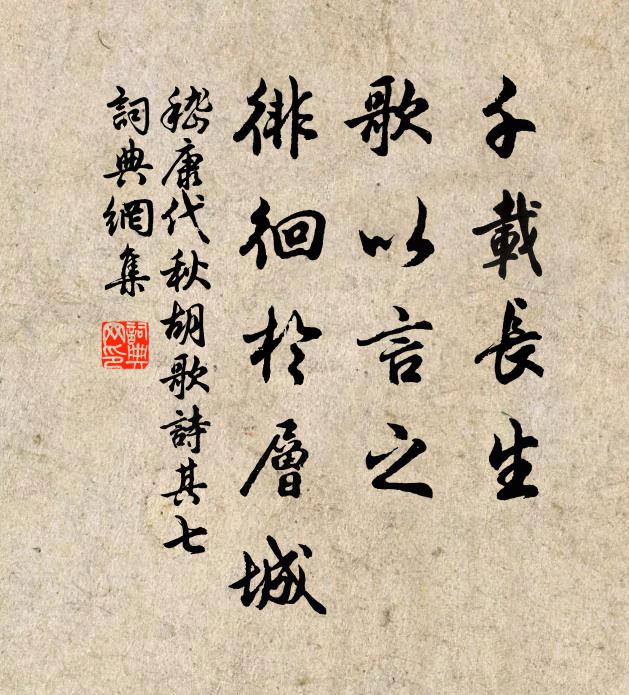 千載長生
歌以言之
徘徊於層城
嵇康代秋胡歌詩其七
詞典網集
詞典网印